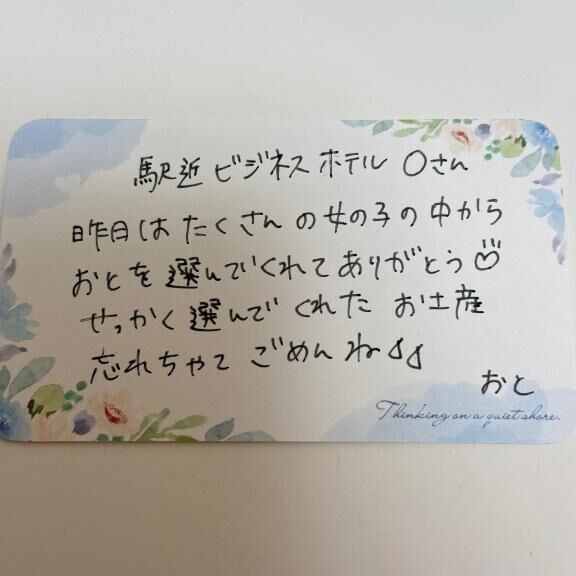 駅近 ビジネス ホテル 〇さん
昨日は たくさん の 女の子の 中から
おとを 選んでくれて ありがとう
せっかく 選んで くれた お土産
忘れちゃて ごめんね
おと
Thinking on a quiet shore.